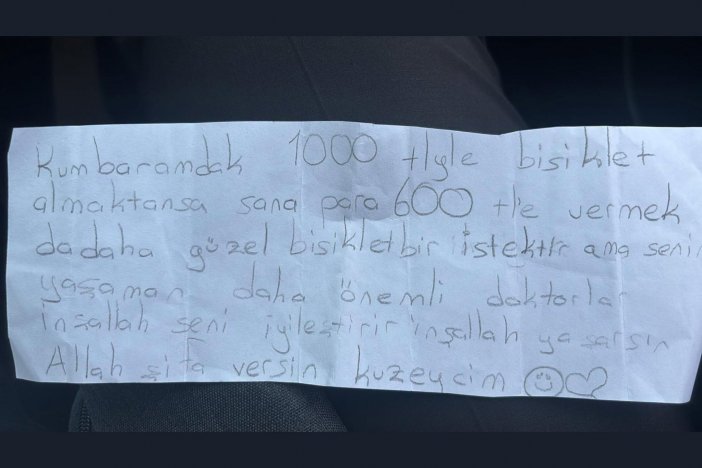 Kumbaramdak 1000 tlyle bisiklet
almaktansa sana para 600 tl'e vermek
dadaha güzel bisikletbir istektir ama senin
yaşaman daha önemli doktorlar
inşallah seni iyileştirir inşallah yaşarsın
Allah şifa versin kuzeycim